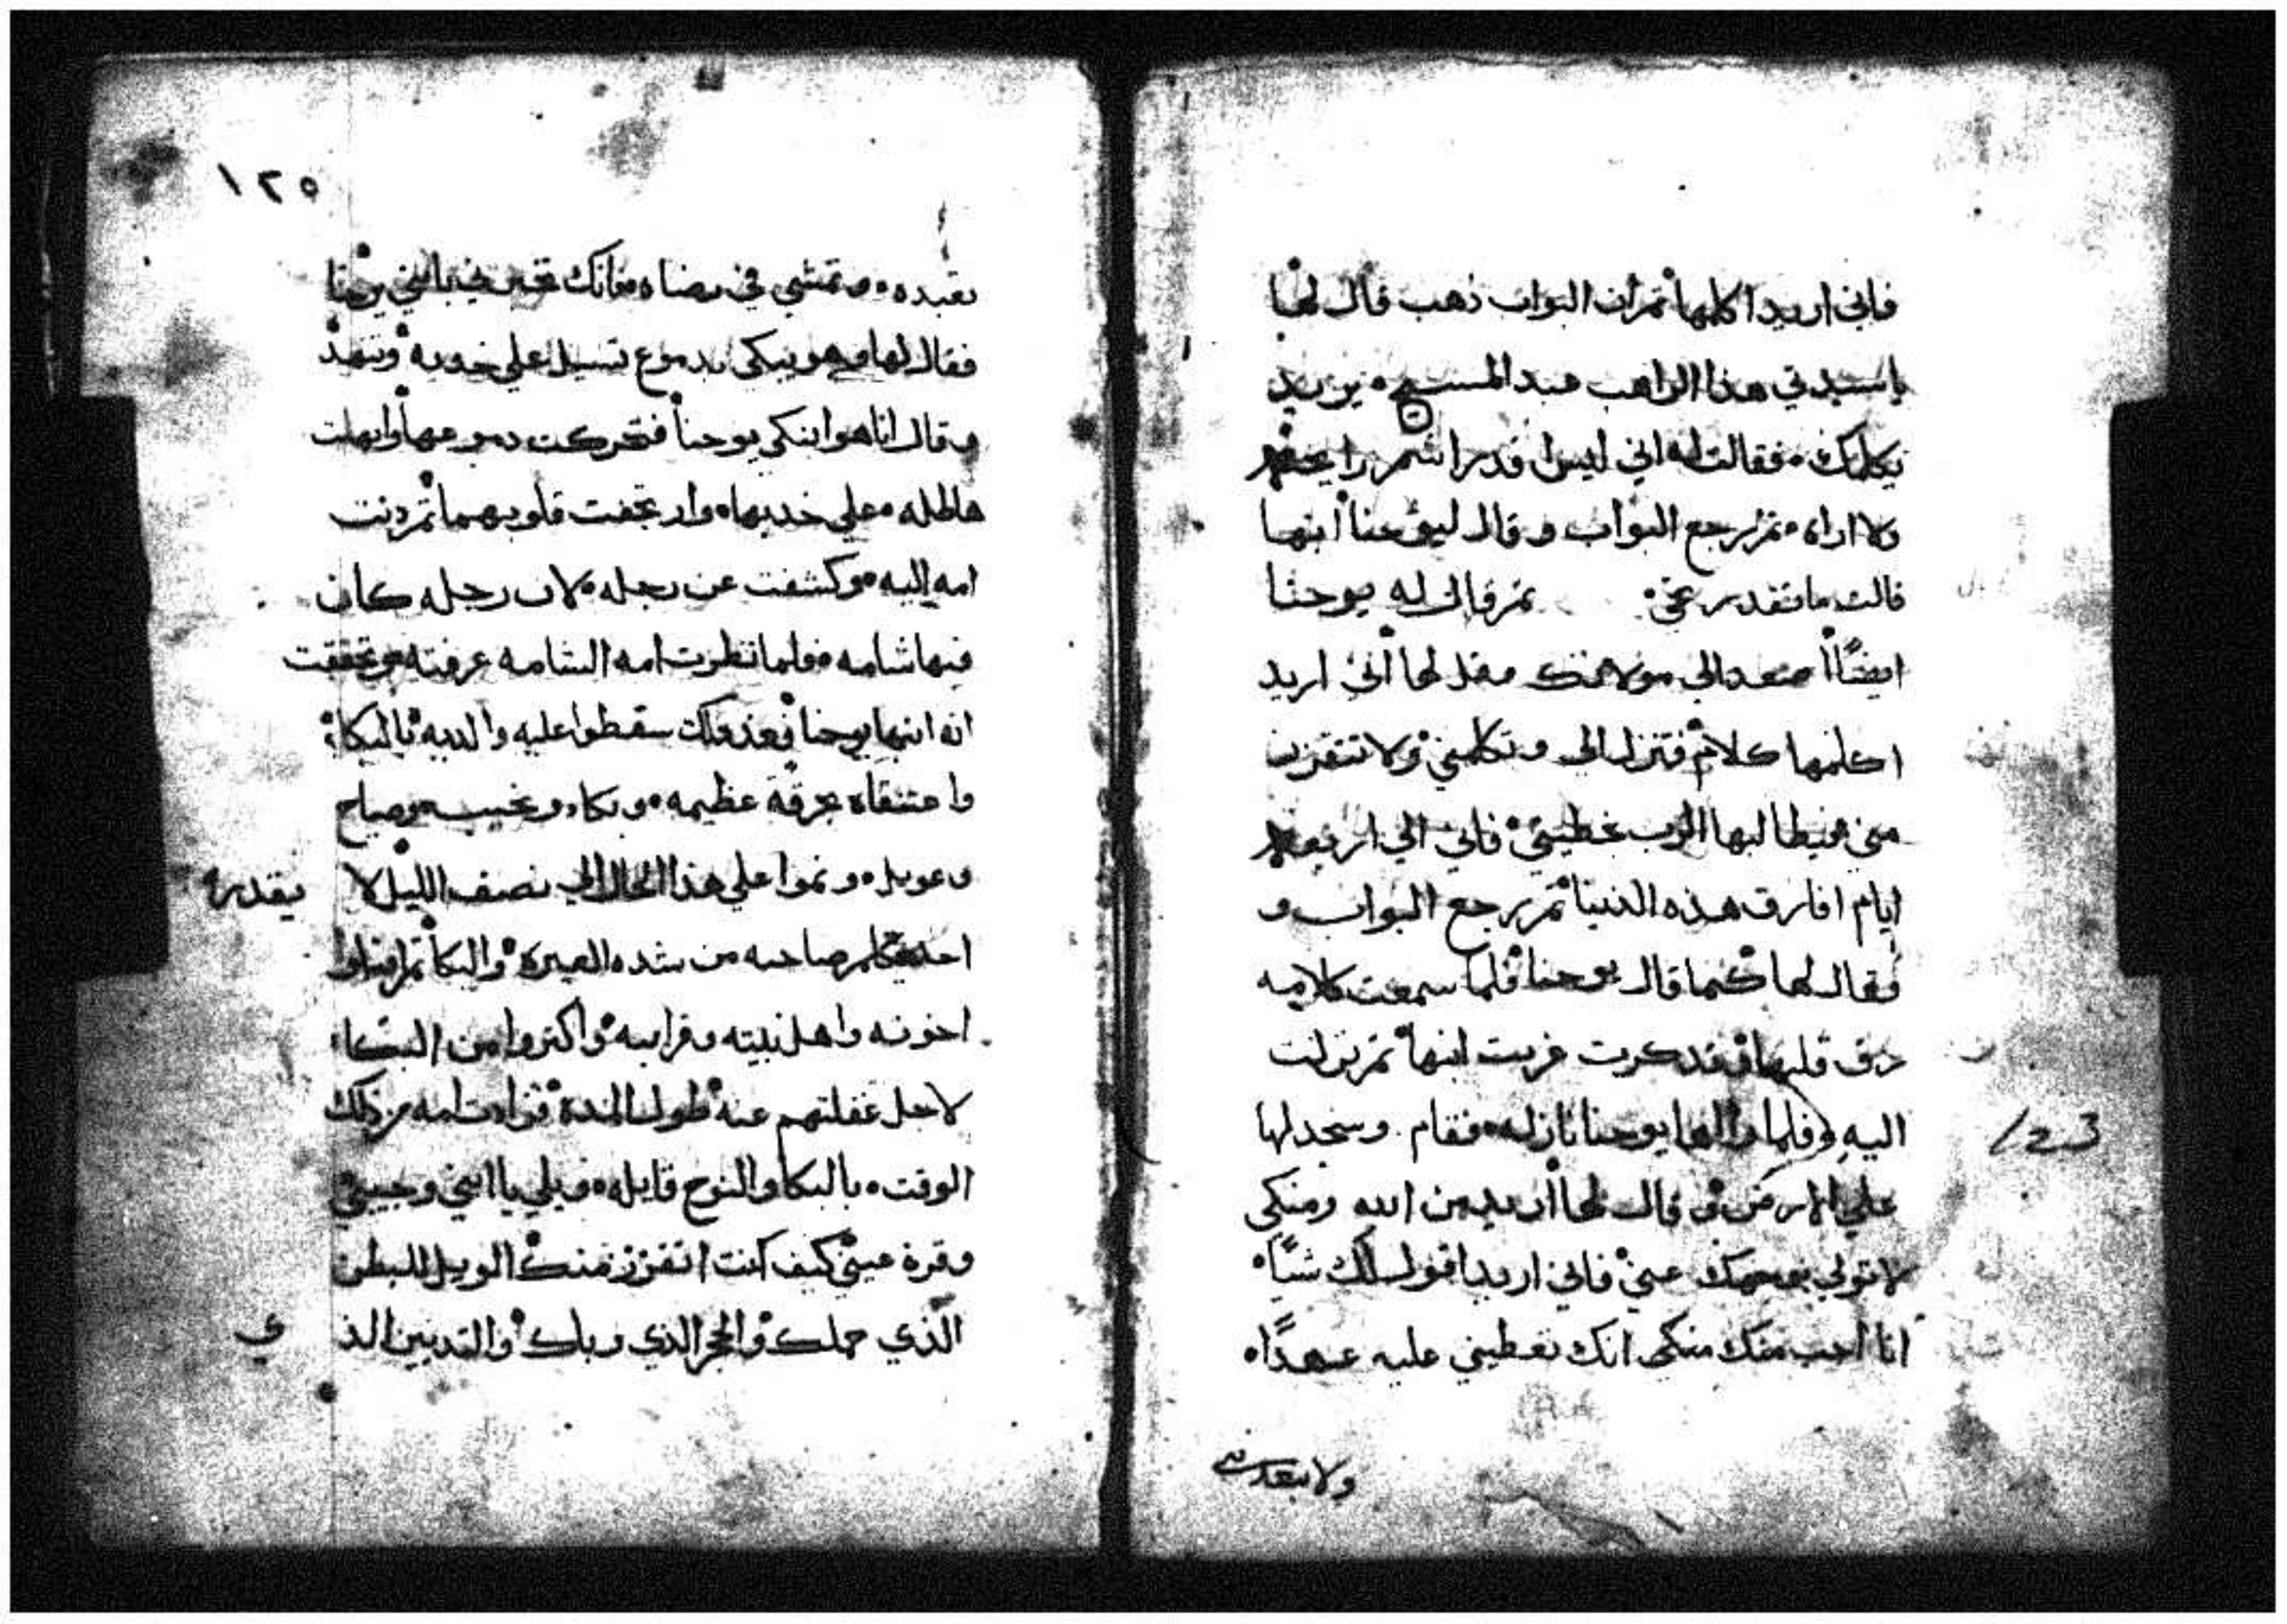 فاني اريد اكلمها ثم ان البواب ذهب قال لها
يا سيدتي هذا الراهب عبد المسيح يريد
يكلمك فقالت له اني ليس اقدر اشم رايحته
ولا اراه ثم رجع البواب وقال ليوحنا ابنها
قالت ما تقدر تجي ثم قال له يوحنا
ايضًا اصعد الي مولاتك وقل لها اني اريد
اكلمها كلام فتنزل الي وتكلمني ولا تتقزز
مني فيطالبها الرب بخطيتي فاني الي اربعة
ايام افارق هذه الدنيا ثم رجع البواب و
فقال لها كما قال يوحنا فلما سمعت كلامه
رق قلبها فتذكرت غربت ابنها ثم نزلت
اليه فلما راها يوحنا نازله فقام وسجد لها
علي الارض وقال لها اريد من الله ومنكي
لا تولي بوجهك عني فاني اريد اقول لك شيًا
انا احب منك منكي انك تعطيني عليه عهدًا
ولا بعد
123
١٢٥
تعبده وتمشي في رضاه فانك بابني يوحنا
فقال لها وهو يبكي بدموع تسيل علي خدوده وتنهد
وقال انا هو ابنكي يوحنا فتحركت دموعها وانهلت
هاطله علي خديها وارتجفت قلوبهما ثم دنت
امه اليه وكشفت عن رجله لان رجله كان
فيها شامه فلما نظرت امه الشامه عرفته وتحققت
انه ابنها يوحنا فعند ذلك سقطوا عليه والديه بالبكاء
واعتنقاه بحرقة عظيمه وبكاء ونحيب وصياح
وعويل ونموا علي هذا الحال الي نصف الليل لا يقدر
احد يكلم صاحبه من شده العبرة والبكا ثم اقبلوا
اخوته واهل بيته وقرايبه واكتروا من البكاء
لاجل غفلتهم عنه طول المدة فزادت امه من ذلك
الوقت بالبكا والنوح قايله ويلي يا ابني وحبيبي
وقرة عيني كيف كنت اتقزز منك الويل للبطن
الذي حملك والحجر الذي رباك والتديين الذ ي